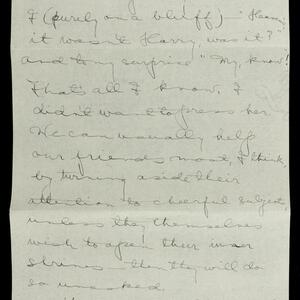 I (purely on a bluff) — "
it wasn't Harry, was it?"
and to my surprise "My, know!
That's all I know. I
didn't want to press her.
We can usually help
our friends most, I think,
by turning aside their
attention to cheerful subjects,
unless they themselves
wish to open their inner
shrines — then they will do
so unasked.